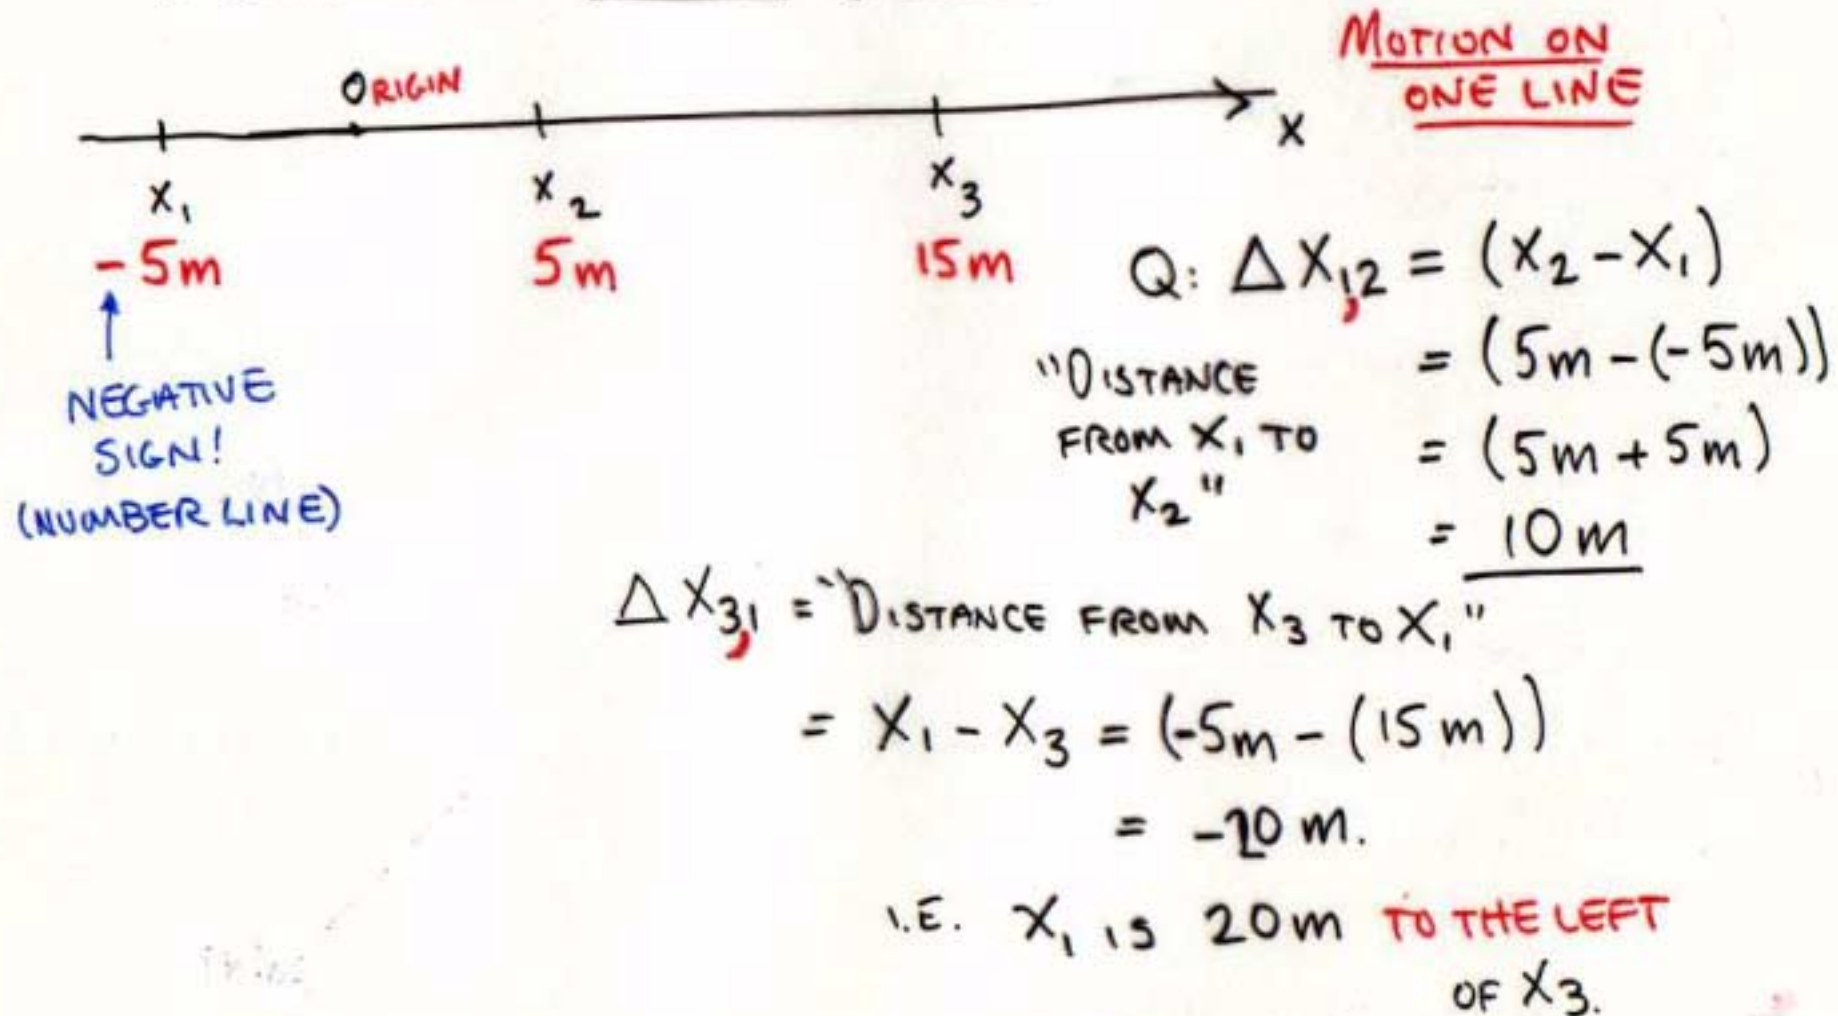 MOTION ON
ONE LINE
ORIGIN
X
X₁ X₂ X₃
-5m 5m 15m
NEGATIVE
SIGN!
(NUMBER LINE)
Q: ΔX₁,₂ = (X₂-X₁)
= (5m-(-5m))
= (5m+5m)
= 10m
"DISTANCE
FROM X₁ TO
X₂"
ΔX₃,₁ = "DISTANCE FROM X₃ TO X₁"
= X₁ - X₃ = (-5m - (15m))
= -20 m.
I.E. X₁ IS 20m TO THE LEFT
OF X₃.